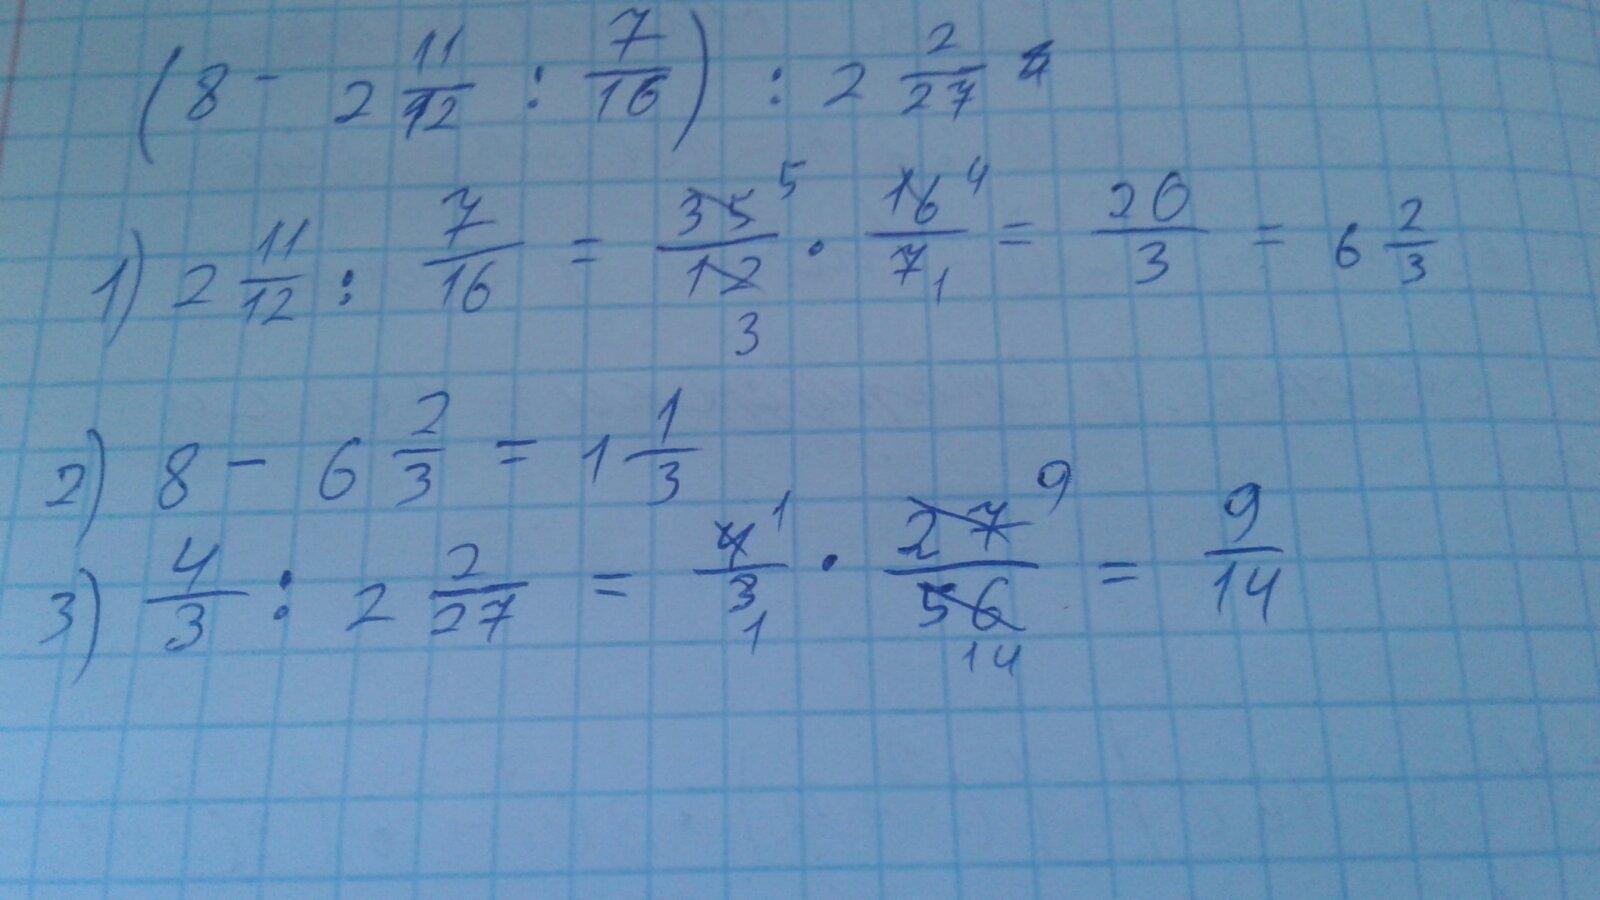 (8 - 2 11/12 : 7/16) : 2 2/27
1) 2 11/12 : 7/16 = 35 5/12 3 · 16 4/7 1 = 20/3 = 6 2/3
2) 8 - 6 2/3 = 1 1/3
3) 4/3 : 2 2/27 = 4 1/3 1 · 27 9/56 14 = 9/14